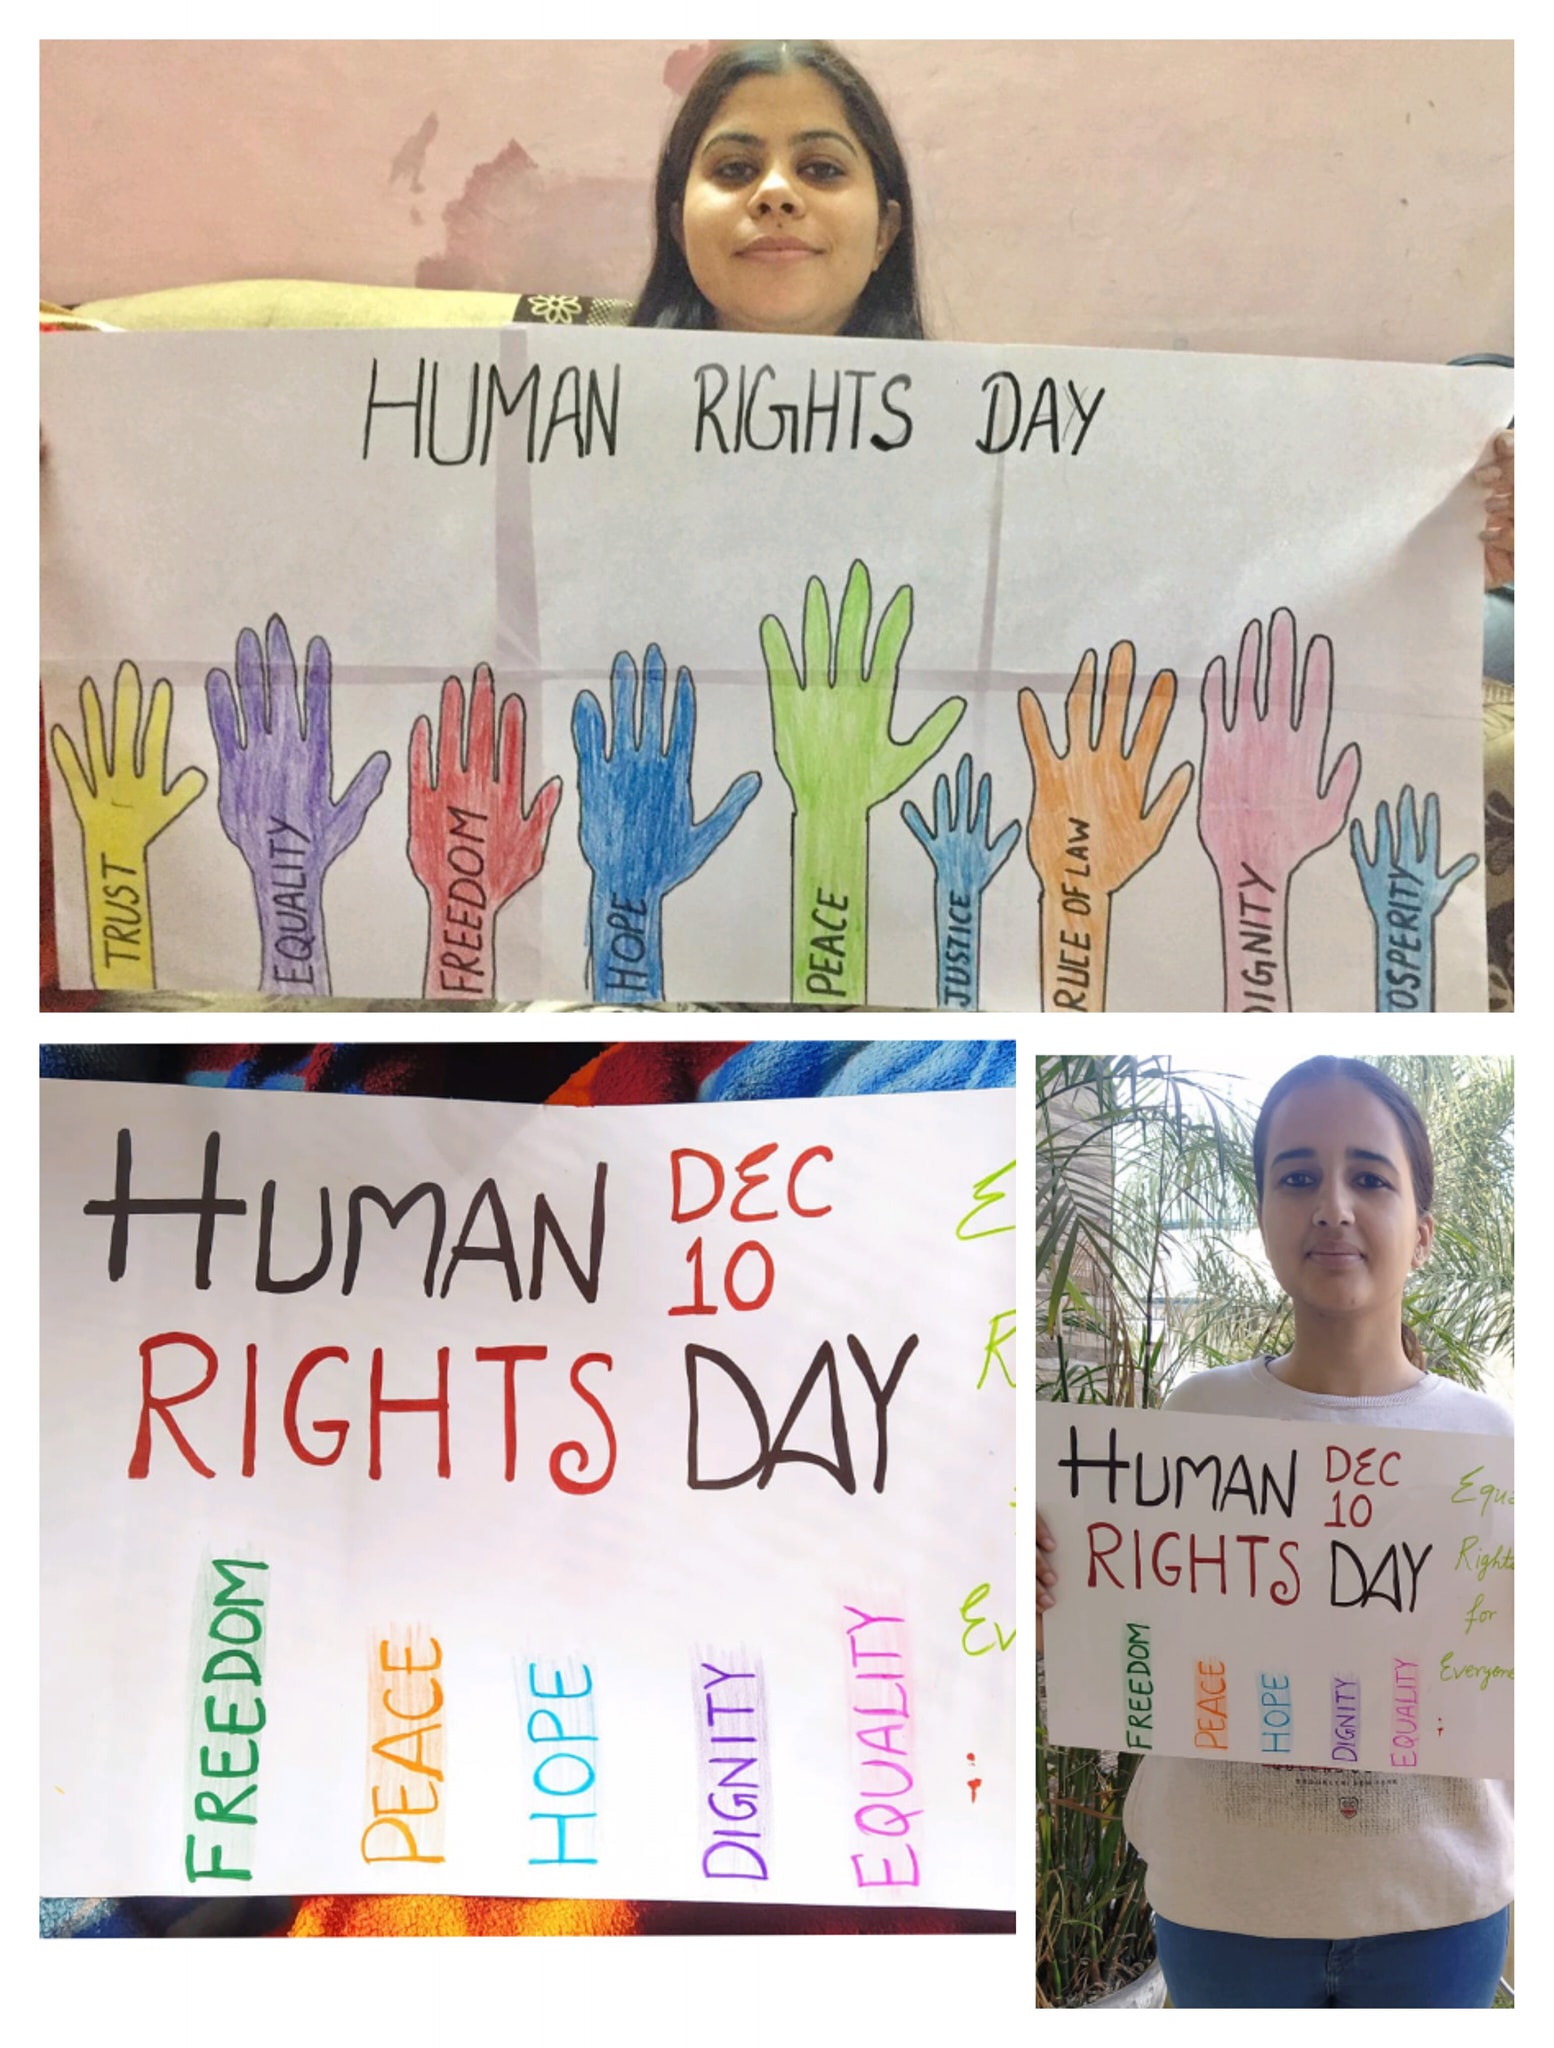 HUMAN RIGHTS DAY
TRUST
EQUALITY
FREEDOM
HOPE
PEACE
JUSTICE
RULE OF LAW
DIGNITY
OSPERITY
HUMAN DEC
10
RIGHTS DAY
E
R
Ev
FREEDOM
PEACE
HOPE
DIGNITY
EQUALITY
HUMAN DEC
10
RIGHTS DAY
Equa
Rights
for
Everyone
FREEDOM
PEACE
HOPE
DIGNITY
EQUALITY